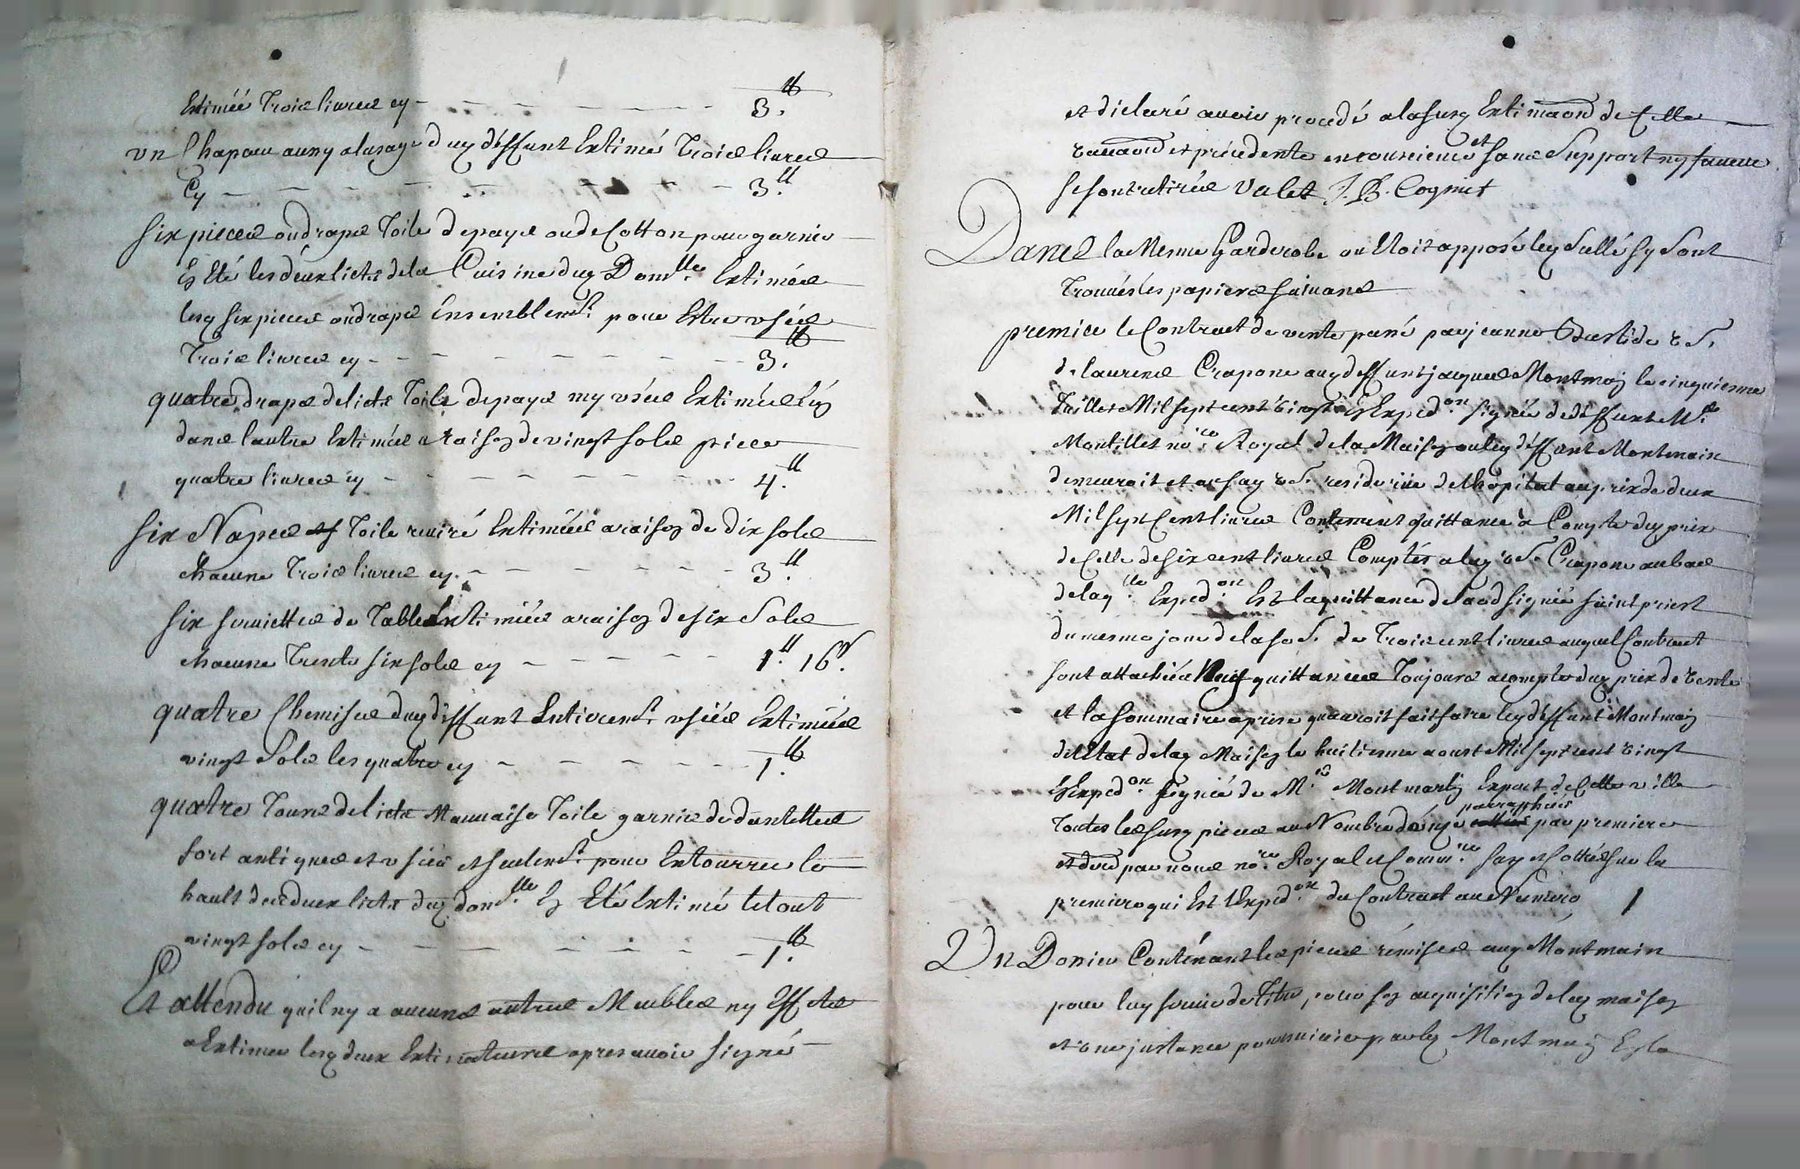 Estimée Trois livres cy - - - - - - - 3.tt
un Chapeau aussy alusage dud deffunt Estimé Trois livres
Cy - - - - - - - - 3.tt
Six pieces ou draps Toile de paye ou de Cotton pour garnir
les deux licts de la Cuisine dud Domlle Estimés
lesd six pieces ou draps Ensemblemt. pour Estre usés
Trois livres cy - - - - - - - - 3.tt
quatre draps de licts Toile de paye my usés Estimés
dans lautre Estimés a Raison de vingt sols piece
quatre livres cy - - - - - - - - 4.tt
Six Napes Toile Estimées a raison de dix sols
chacune Trois livres cy. - - - - - - 3.tt
Six serviettes de Table Estimées a raison de six Sols
chacune Trente six sols cy - - - - - - 1.tt 16s.
quatre Chemises dud deffunt Entieremt. usées Estimées
vingt Sols les quatre cy - - - - - - 1.tt
quatre Tours de licts Mauvaise Toile garnis de dantelles
fort antiques et usées et seulemt. pour Entourrer le
hault des deux licts dud. domlle Eté Estimé le tout
vingt sols cy - - - - - - - 1.tt
Et attendu quil ny a aucuns autres Meubles ny Effets
a Estimer lesd deux Estimateurs apres avoir signé
et declaré avoir procedé a la susd Estimaon de Celle
et precedente en conscience et sans Support ny faveur
se sont retirés Valet J. B. Cognet
Dans la Mesme Garderobe ou Etoit apposé led Sellé sy sont
Trouvés les papiers suivans
premier le Contract de vente passé par jeanne
de laurens Crapone aud deffunt jacques Montmain le cinquiesme
Juillet Mil sept cent vingt Expedon. signée de deffunt Me.
Montillet nore. Royal de la Maison ou led deffunt Montmain
demeuroit et a rue de lhopital au prix de deux
Mil sept Cent livres Contenant quittance a Compte dud prix
de Celle de six cent livres Comptés a lad Crapone au bas
de laqlle Expedon. Est la quittance de signée saint priest
du mesme jour de la so. de Trois cent livres auquel Contract
sont attachés quittances Toujours acompte dud prix de vente
et la sommaire aprise quauroit fait faire led deffunt Montmain
de lEtat de lad Maison le huitiesme aoust Mil sept cent vingt
Expedon. signée de Me. Expert de Cette ville
Toutes les susd pieces au Nombre de paraphées par premiere
et par nous nore. Royal et Commre. et Cottées sur la
premiere qui Est lExpedon. du Contract au Numero 1
Un Dossier Contenant les pieces remises aud Montmain
pour luy servir de Titre, pour son acquisition de lad maison
et une instance poursuivie par led Montmain